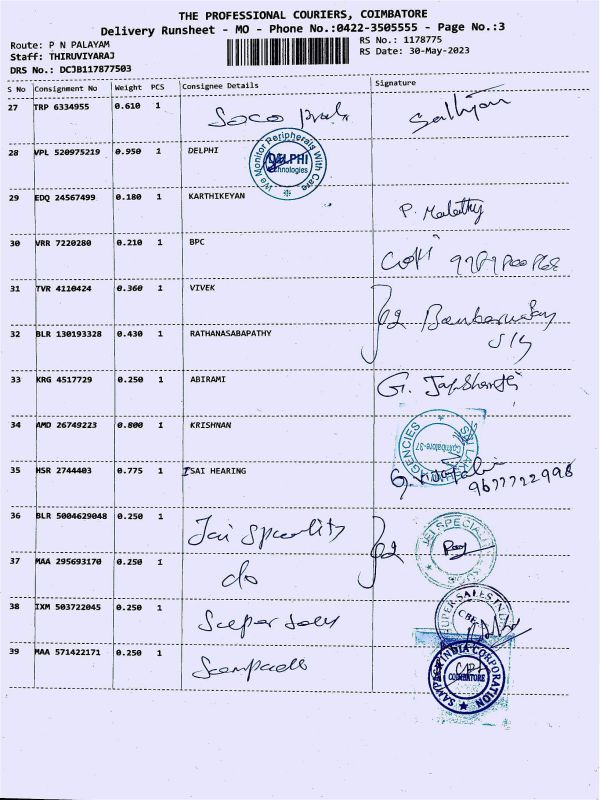 THE PROFESSIONAL COURIERS, COIMBATORE
Delivery Runsheet - MO - Phone No.:0422-3505555 - Page No.:3
Route: P N PALAYAM RS No.: 1178775
Staff: THIRUVIYARAJ RS Date: 30-May-2023
DRS No.: DCJB117877503
S No Consignment No Weight PCS Consignee Details Signature
27 TRP 6334955 0.610 1 Soco
28 VPL 520975219 0.950 1 DELPHI
We Monitor Peripherals With Care
DELPHI
Technologies
29 EDQ 24567499 0.180 1 KARTHIKEYAN P. Malathy
30 VRR 7220280 0.210 1 BPC
31 TVR 4110424 0.360 1 VIVEK
32 BLR 130193328 0.430 1 RATHANASABAPATHY
33 KRG 4517729 0.250 1 ABIRAMI G.
34 AMD 26749223 0.800 1 KRISHNAN
AGENCIES
Coimbatore-37
35 HSR 2744403 0.775 1 ISAI HEARING
9677722998
36 BLR 5004629048 0.250 1 Jai Speciality
JEI SPECIALI
37 MAA 295693170 0.250 1 do
38 IXM 503722045 0.250 1 Super Sales
SUPER SALES IN
CBE
39 MAA 571422171 0.250 1
INDIA CORPORATION
COIMBATORE